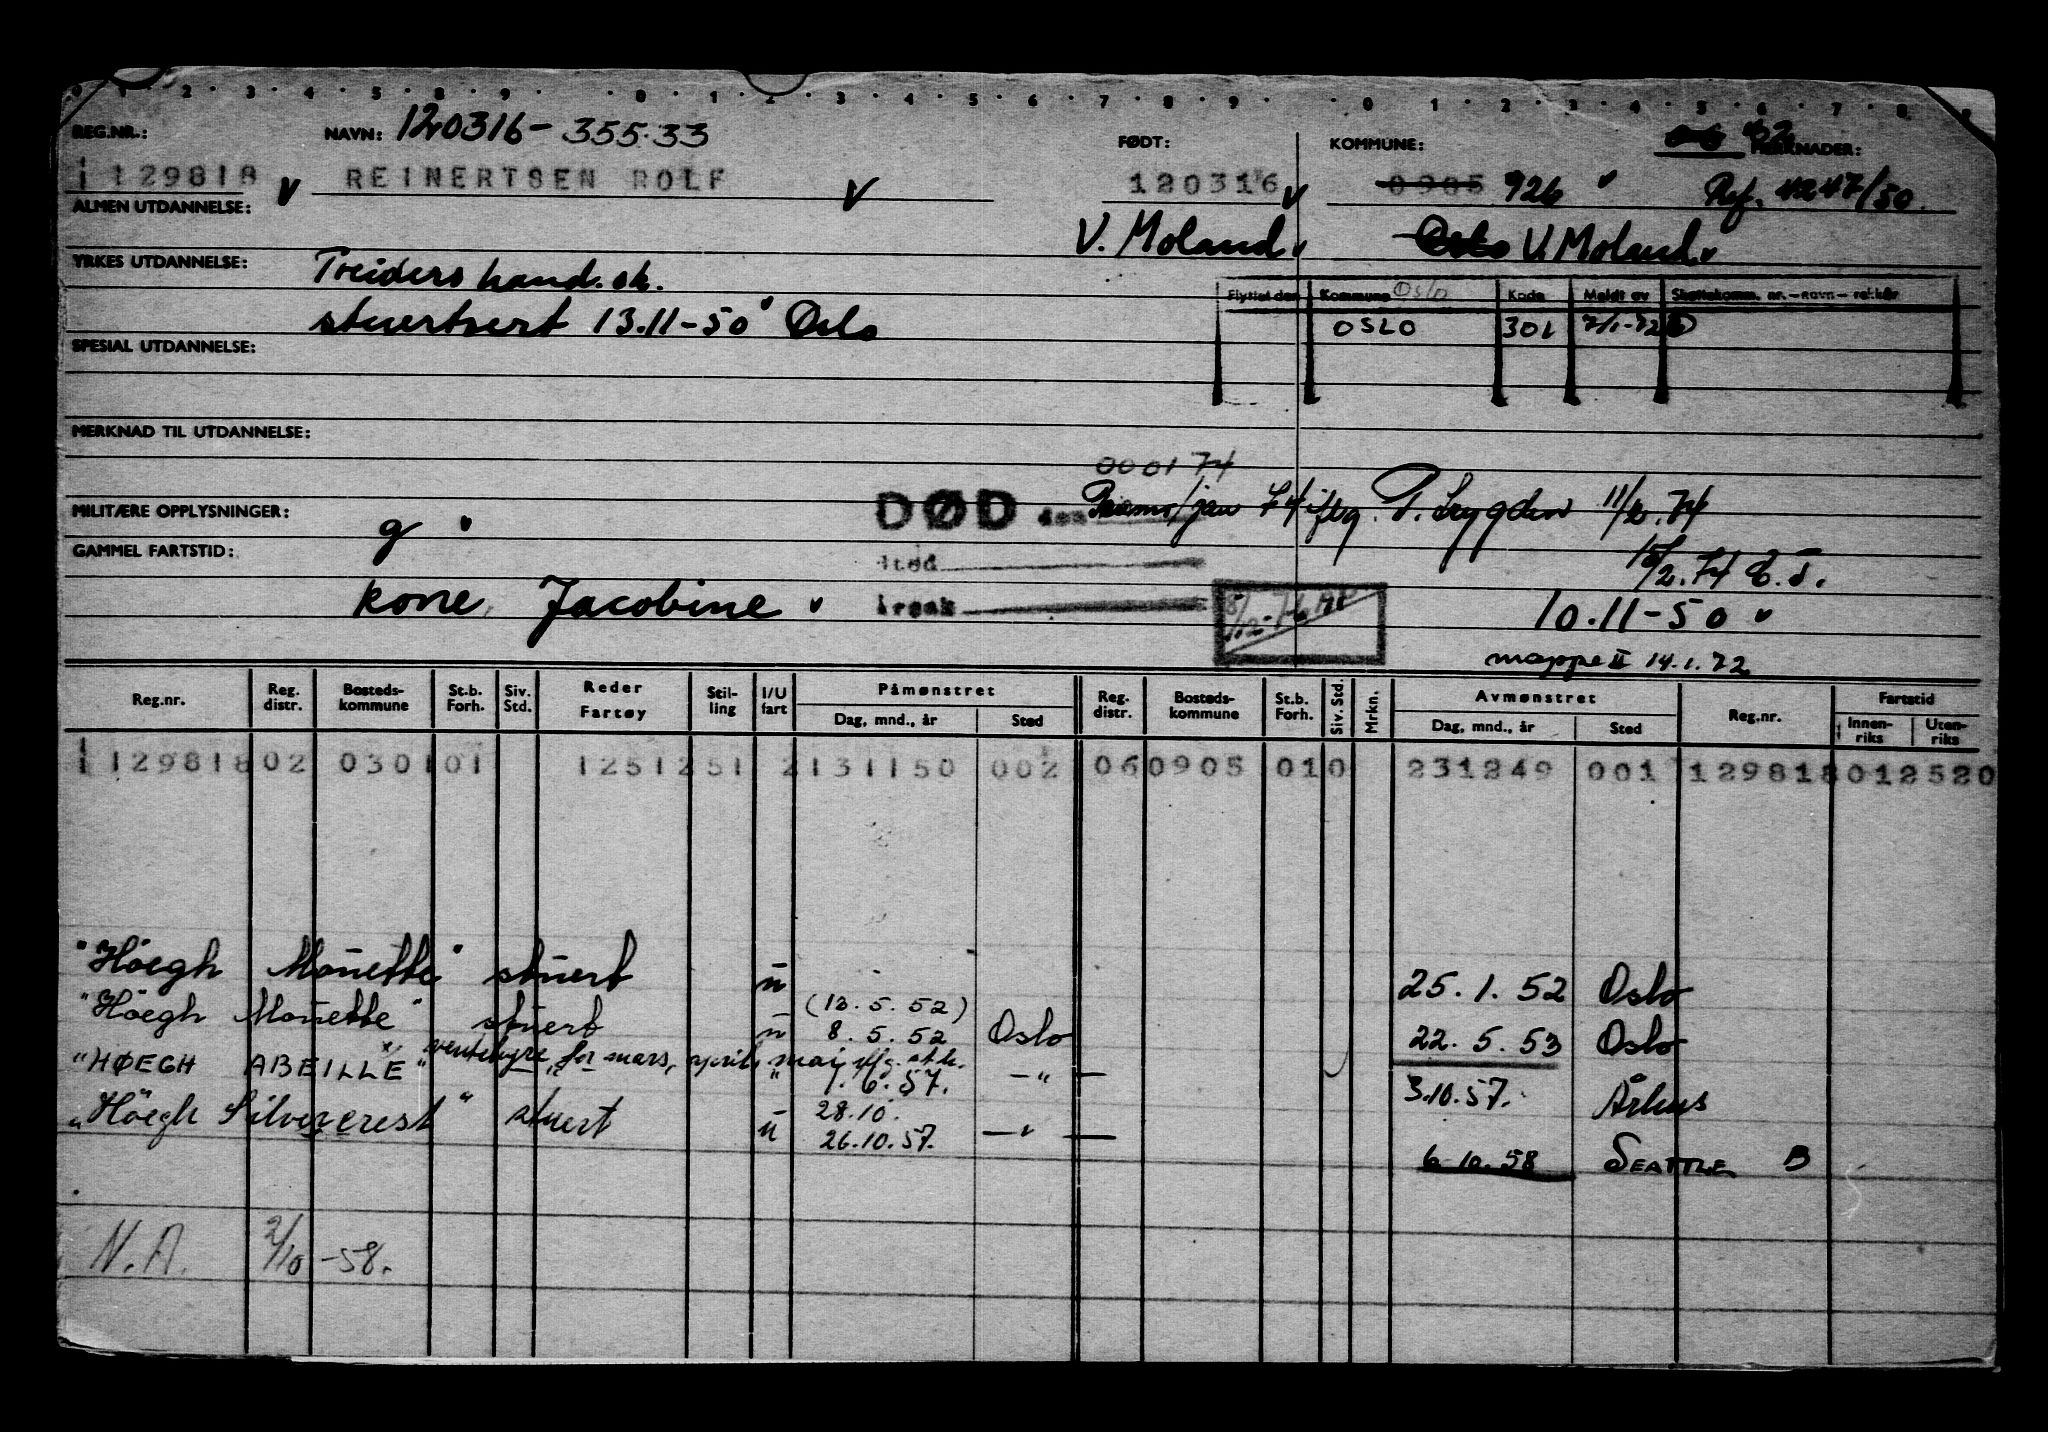 0 1 2 3 4 5 8 9 0 1 2 3 4 5 6 7 8 9 0 1 2 3 4 5 6 7 8 9
REG.NR.: NAVN: 120316-355.33 FØDT: KOMMUNE: 62 MERKNADER:
129818 REINERTSEN ROLF 120316 0905 926 Ref. 4247/50
ALMEN UTDANNELSE: V. Moland Oslo V. Moland
YRKES UTDANNELSE: Treiders hand.sk.
Flyttet den Kommune Oslo Kode Meldt av Skattekomm. nr.-navn-rel.kår
stuertsert 13.11-50 Oslo OSLO 301 7/1-72
SPESIAL UTDANNELSE:
MERKNAD TIL UTDANNELSE:
000174
MILITÆRE OPPLYSNINGER: g DØD den jan 74 iflg. P. Lrygden 11/2.74
GAMMEL FARTSTID: sted 15/2.74
kone, Jacobine årsak 10.11-50
mappe II 14.1.72
Reg.nr. Reg. distr. Bosteds-kommune St.b. Forh. Siv. Std. Reder Fartøy Stil-ling I/U fart Påmønstret Dag, mnd., år Sted Reg. distr. Bosteds-kommune St.b. Forh. Siv. Std. Mrkn. Avmønstret Dag, mnd., år Sted Reg.nr. Fartstid Innen-riks Uten-riks
129818 02 0301 01 1251251 2 131150 002 06 0905 01 0 231249 001 129818 012520
"Höegh Mouette" stuert u 25.1.52 Oslo
(13.5.52)
"Höegh Mouette" stuert u 8.5.52 Oslo 22.5.53 Oslo
ventehyre for mars, april, mai
"HØEGH ABEILLE" " 1.6.57. —"— 3.10.57. Århus
28.10.
"Höegh Silvercrest" stuert u 26.10.57. —"—
6.10.58 SEATTLE B
N.A. 2/10-58.